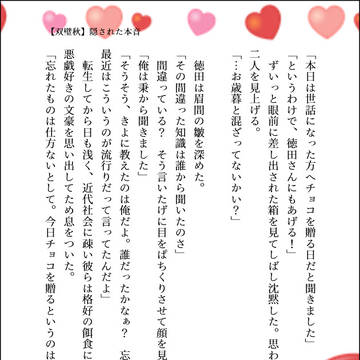 【双璧秋】隠された本音
「本日は世話になった方へチョコを贈る日だと聞きました」
「というわけで、徳田さんにもあげる！」
ずいっと眼前に差し出された箱を見てしばし沈黙した。思わ
二人を見上げる。
「…お歳暮と混ざってないかい？」
徳田は眉間の皺を深めた。
「その間違った知識は誰から聞いたのさ」
間違っている？　そう言いたげに目をぱちくりさせて顔を見
「俺は秉から聞きました」
「そうそう、きよに教えたのは俺だよ。誰だったかなぁ？　忘
最近はこういうのが流行りだって言ってたんだよ」
転生してから日も浅く、近代社会に疎い彼らは格好の餌食に
悪戯好きの文豪を思い出してため息をついた。
「忘れたものは仕方ないとして。今日チョコを贈るというのは